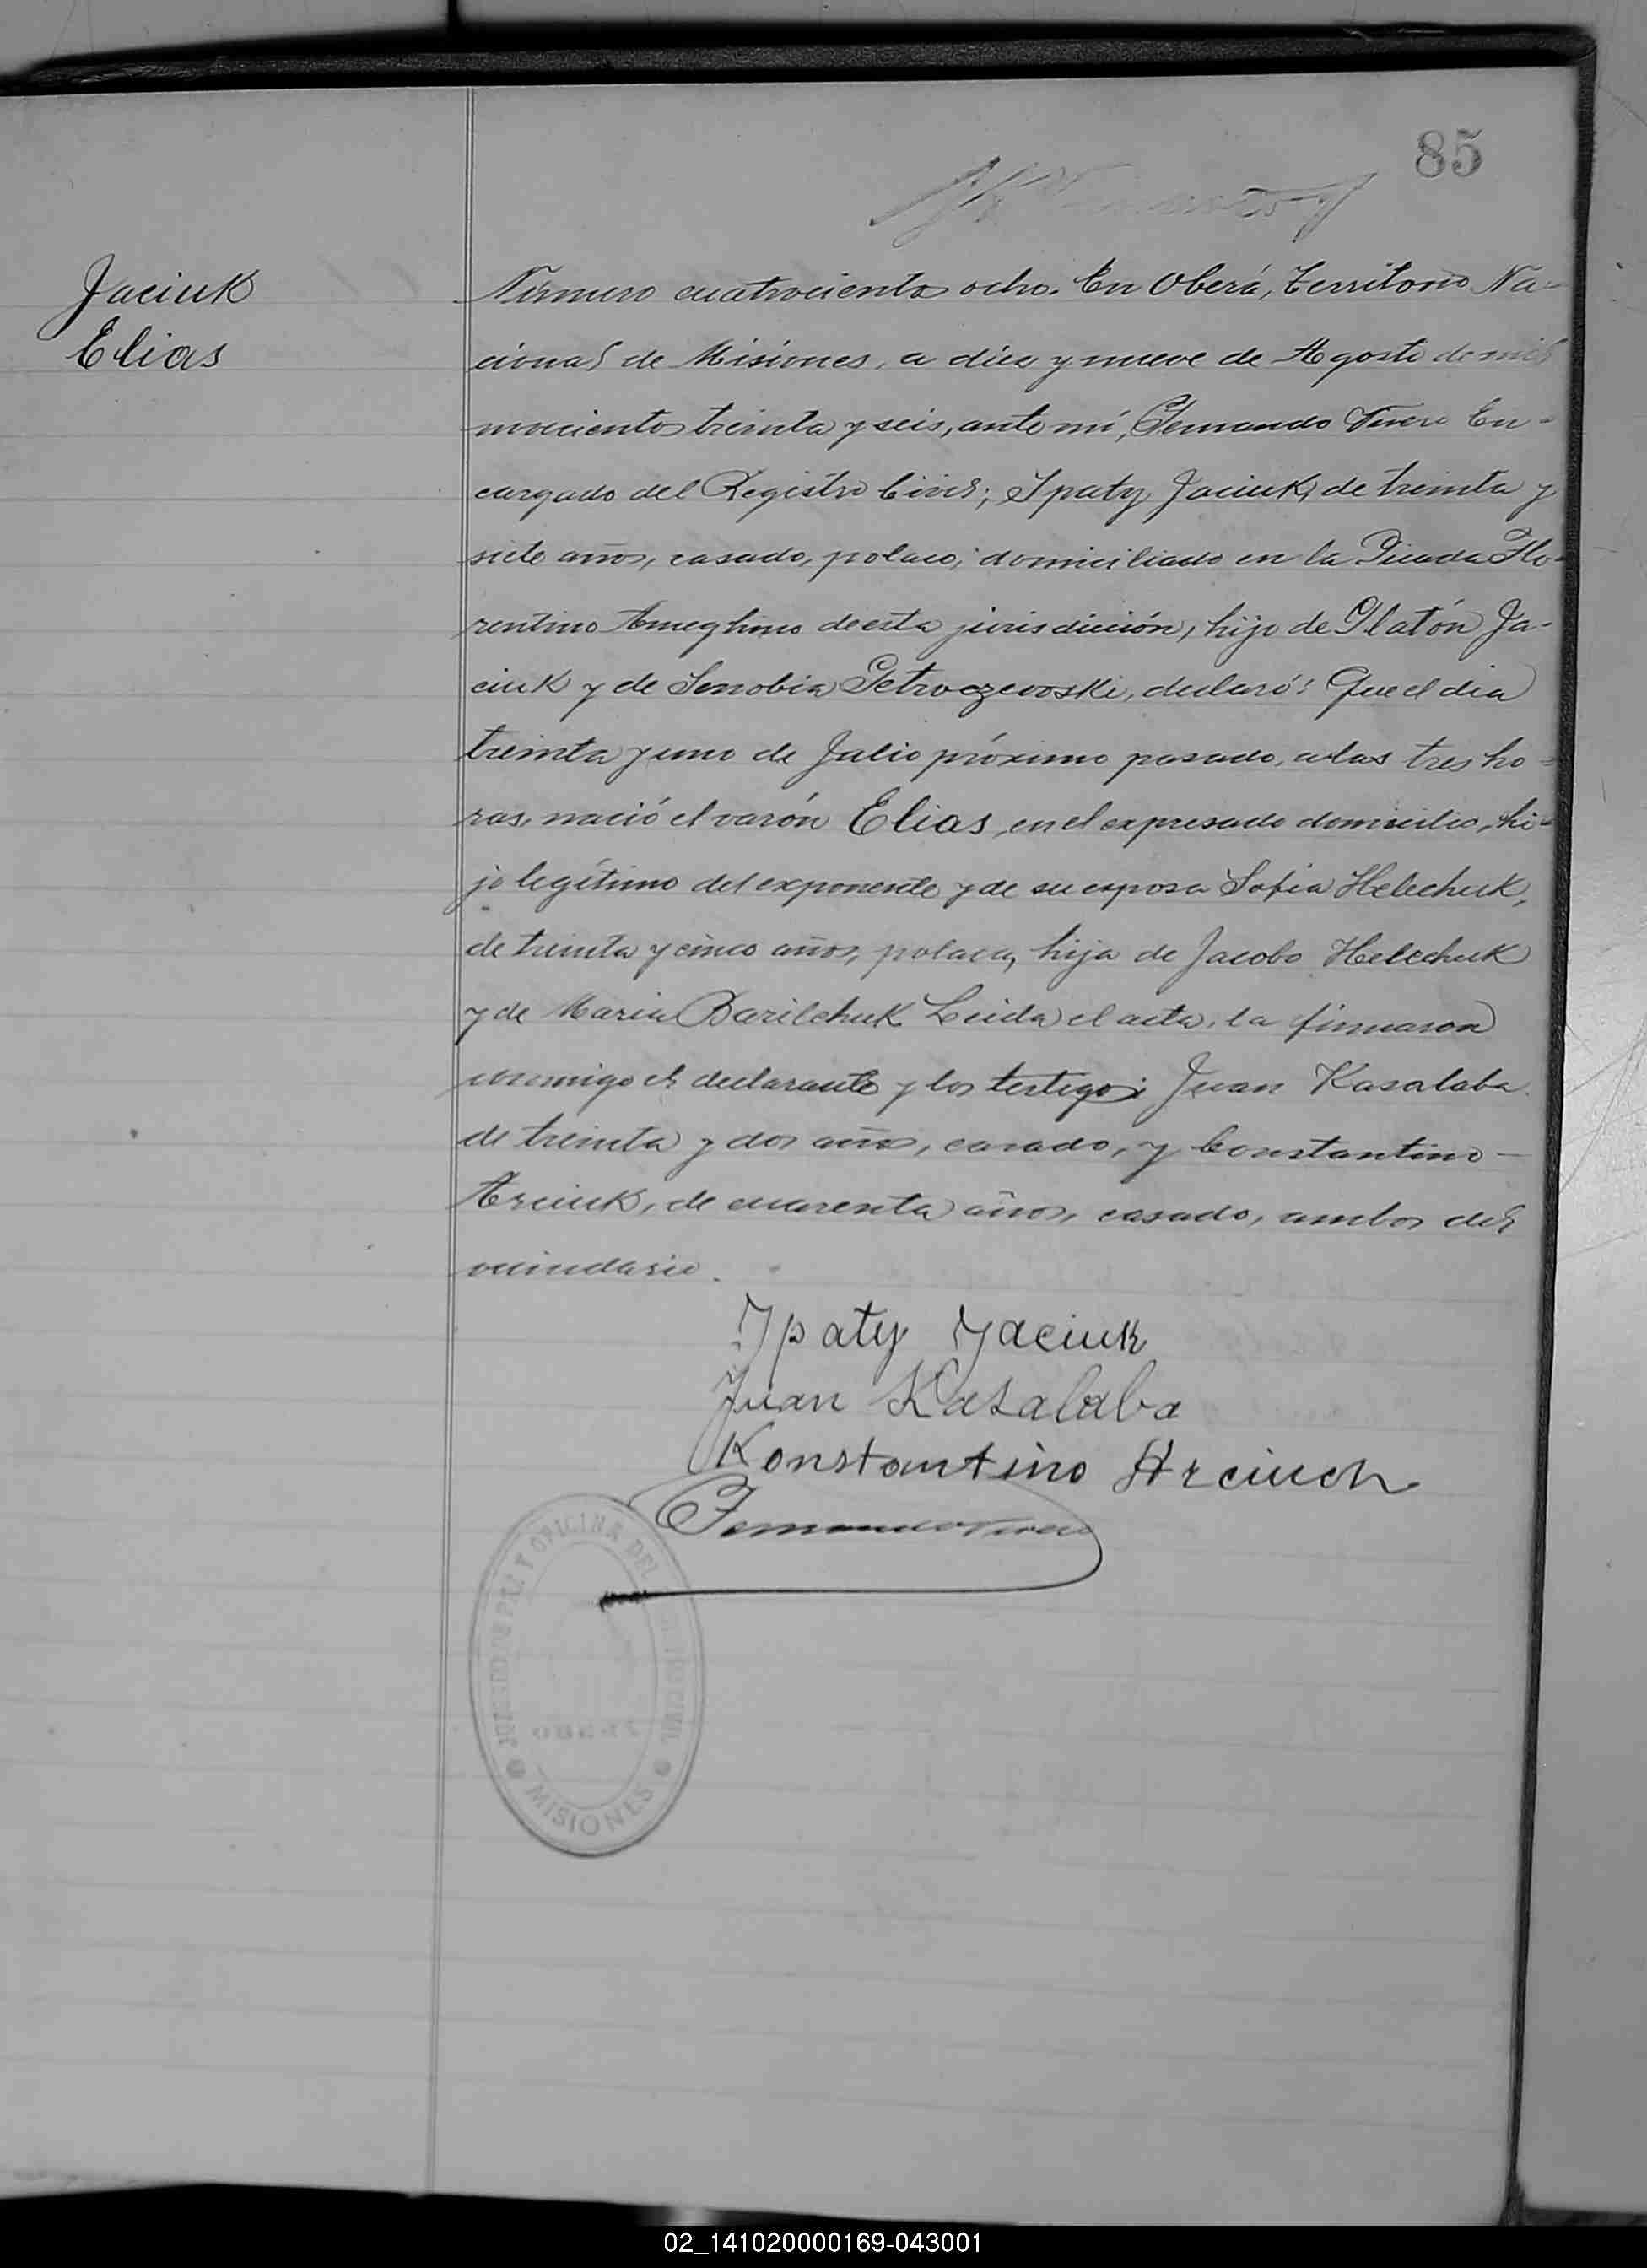 85
Jaciuk
Elias
Número cuatrociento ocho. En Oberá, Territorio Na-
cional de Misiones, a diez y nueve de Agosto de mil
novecientos treinta y seis, ante mí, Fernando Vivero En-
cargado del Registro Civil; Ipaty Jaciuk, de treinta y
siete años, casado, polaco, domiciliado en la Picada Flo-
rentino Ameghino de esta jurisdicción, hijo de Platón Ja-
ciuk y de Senobia Petroczewski, declaró: Que el dia
treinta y uno de Julio próximo pasado, a las tres ho-
ras, nació el varón Elias, en el expresado domicilio, hi-
jo legítimo del exponente y de su esposa Sofia Helechuk,
de treinta y cinco años, polaca, hija de Jacobo Helechuk
y de Maria Barilchuk. Leida el acta, la firmaron
conmigo el declarante y los testigos: Juan Kasalaba
de treinta y dos años, casado, y Constantino
Arciuk, de cuarenta años, casado, ambos del
vecindario.
Ypaty Yaciuk
Juan Kasalaba
Konstantino Arciuch
JUZGADO DE PAZ Y OFICINA DEL CIVIL
MISIONES
02_141020000169-043001